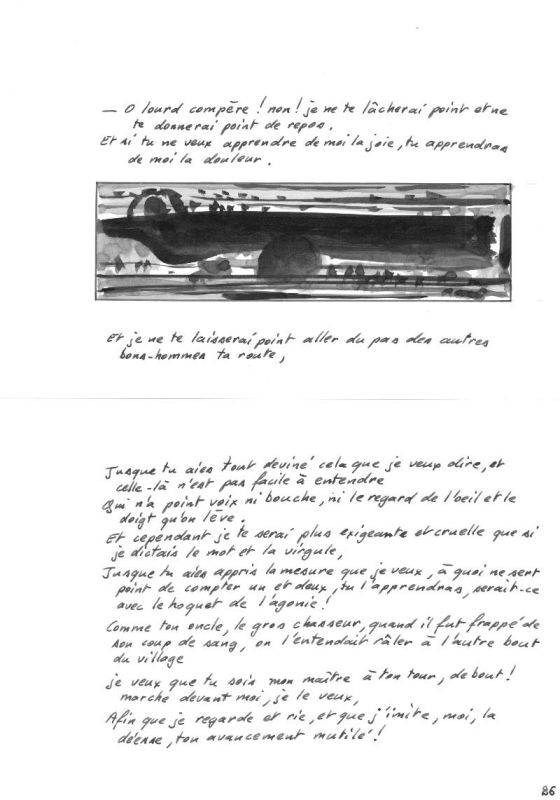 — O lourd compère ! non ! je ne te lâcherai point et ne
te donnerai point de repos.
Et si tu ne veux apprendre de moi la joie, tu apprendras
de moi la douleur.
Et je ne te laisserai point aller du pas des autres
bons-hommes ta route,
Jusque tu aies tout deviné cela que je veux dire, et
celle-là n'est pas facile à entendre
Qui n'a point voix ni bouche, ni le regard de l'oeil et le
doigt qu'on lève.
Et cependant je te serai plus exigeante et cruelle que si
je dictais le mot et la virgule,
Jusque tu aies appris la mesure que je veux, à quoi ne sert
point de compter un et deux, tu l'apprendras, serait-ce
avec le hoquet de l'agonie !
Comme ton oncle, le gros chasseur, quand il fut frappé de
son coup de sang, on l'entendait râler à l'autre bout
du village
je veux que tu sois mon maître à ton tour, debout !
marche devant moi, je le veux,
Afin que je regarde et rie, et que j'imite, moi, la
déesse, ton avancement mutilé !
86